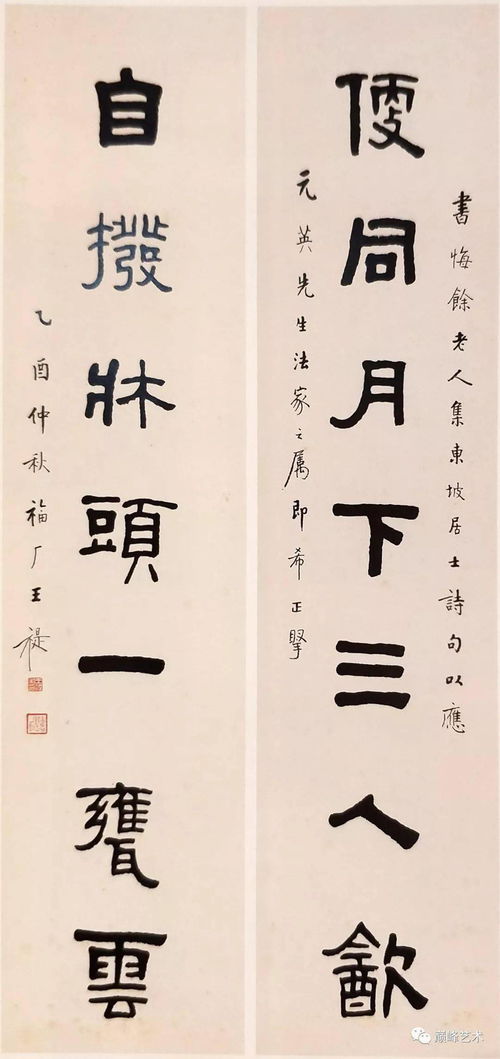 書悔餘老人集東坡居士詩句以應
便同月下三人㱃
元英先生法家之属即希正
自撥牀頭一甕雲
乙酉仲秋福厂王禔
巅峰艺术